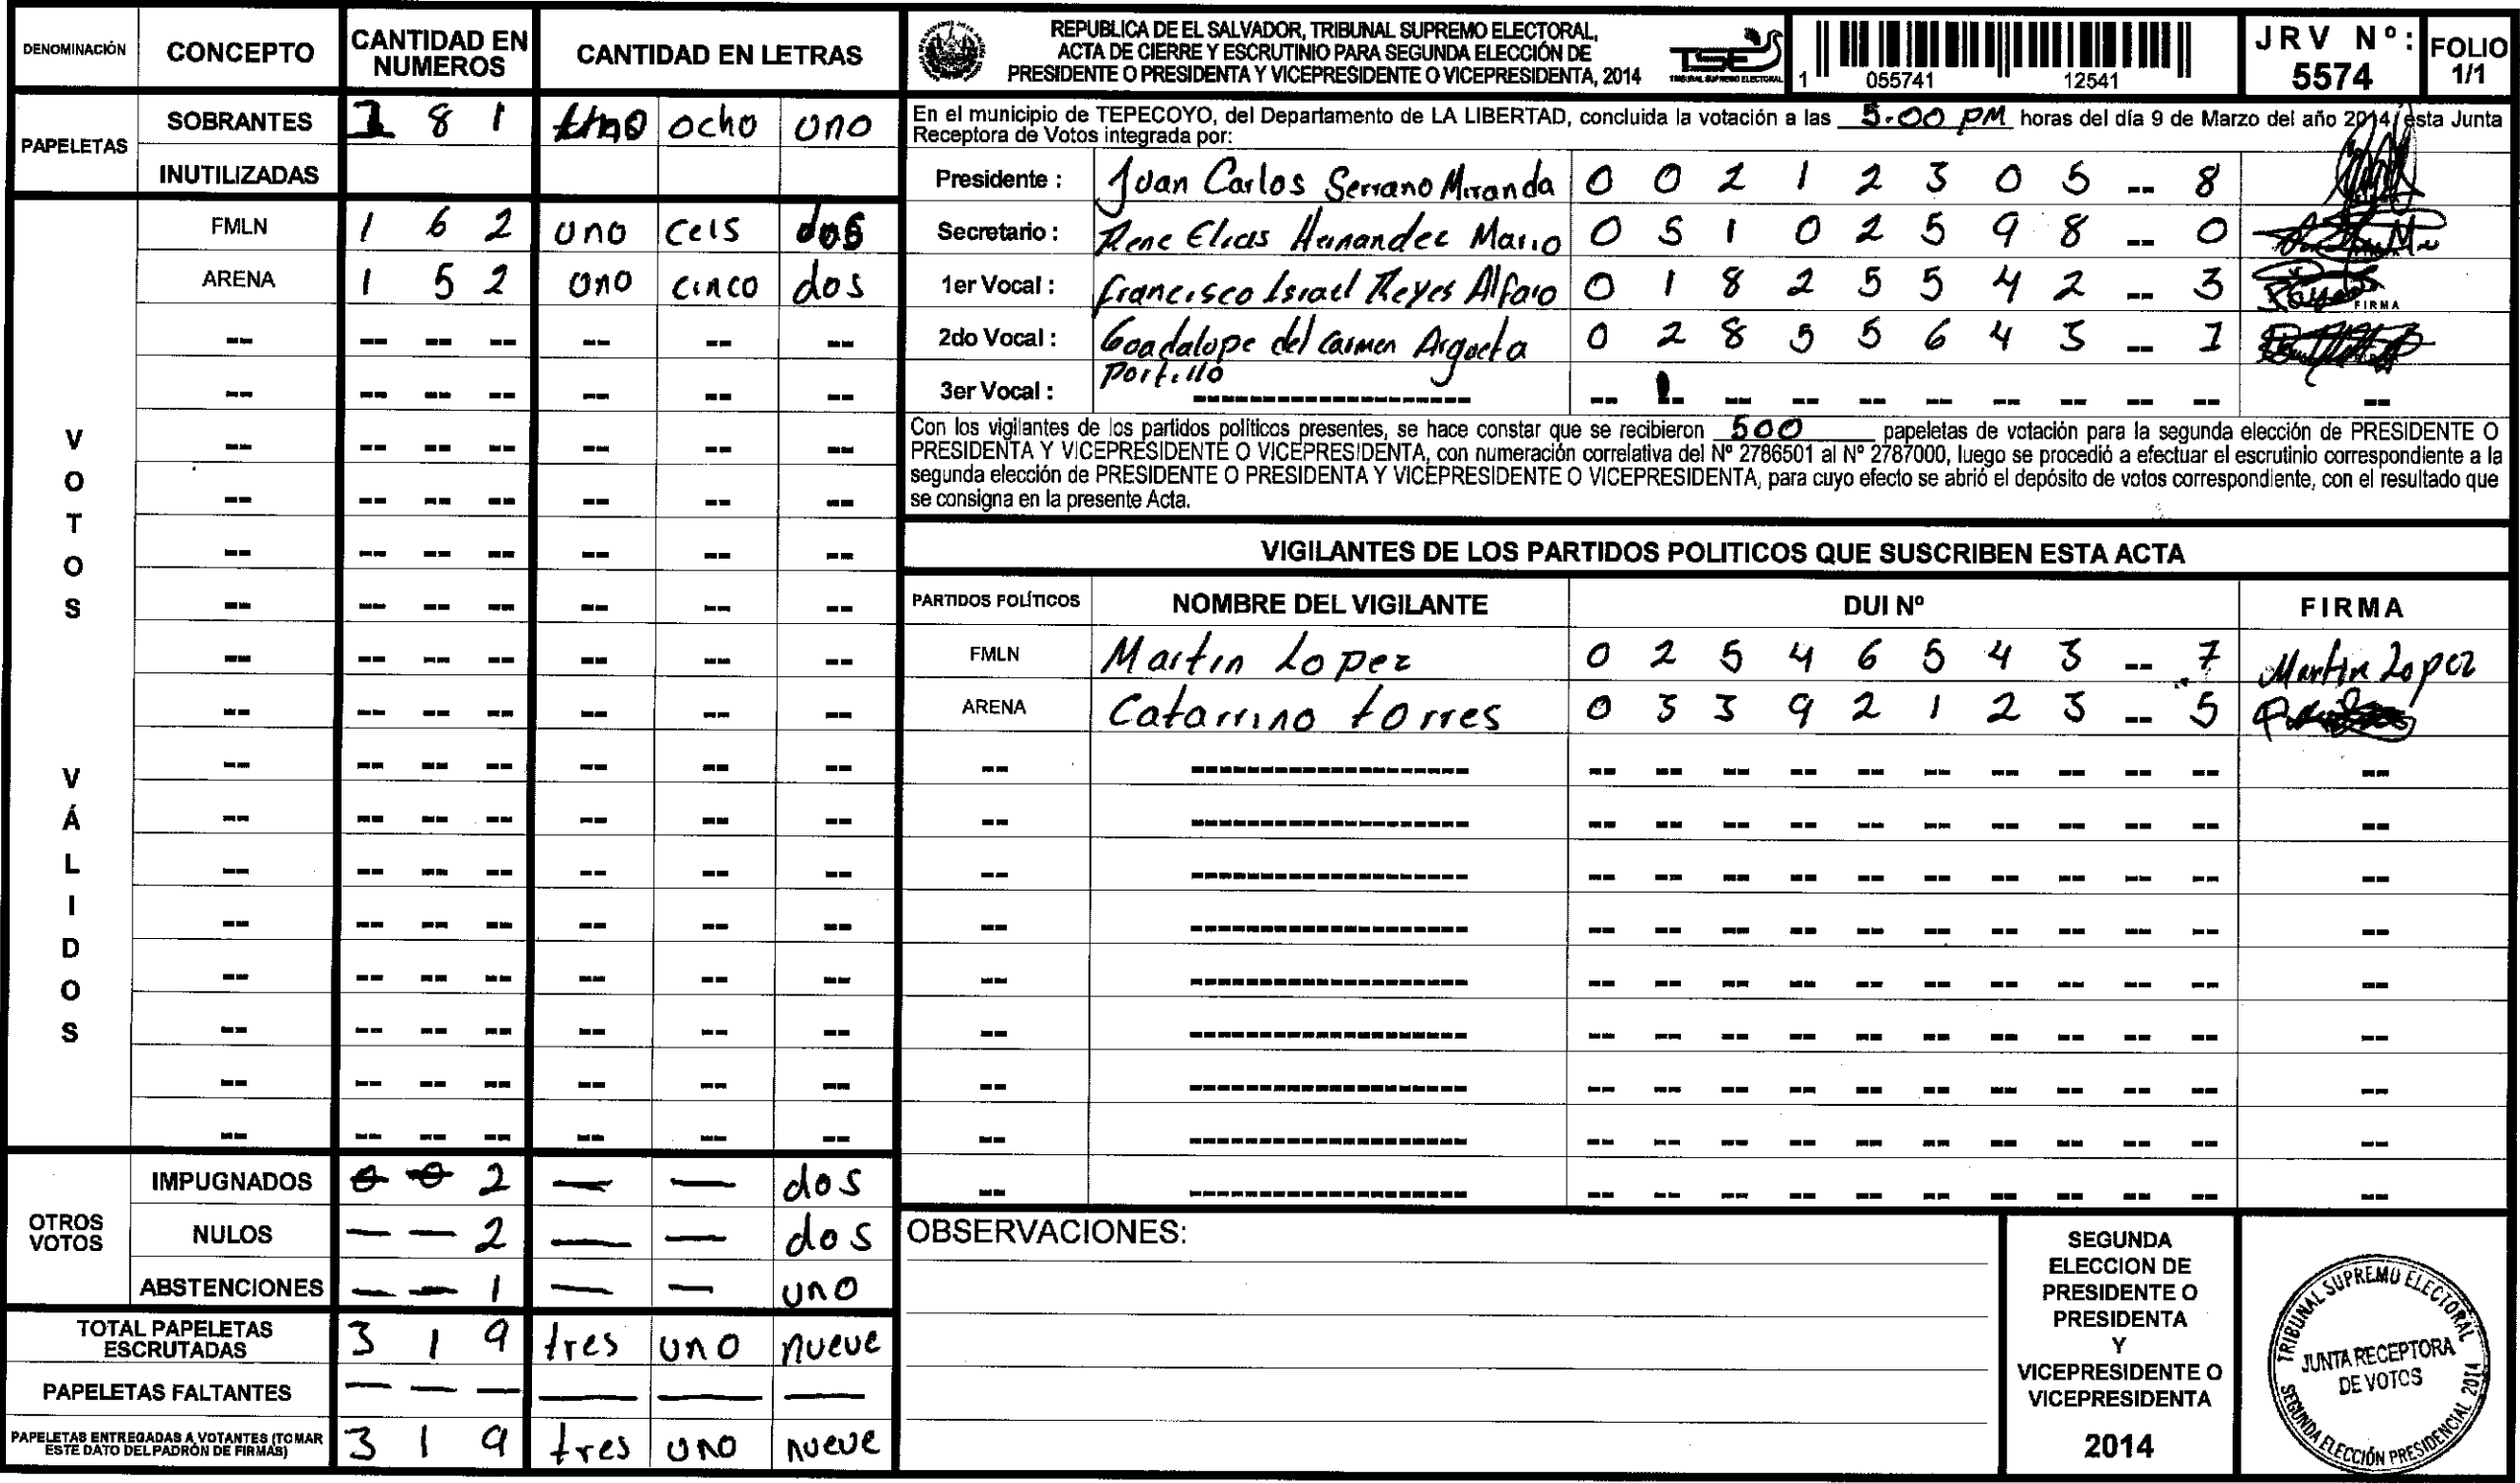 DENOMINACIÓN CONCEPTO CANTIDAD EN NUMEROS CANTIDAD EN LETRAS
PAPELETAS
SOBRANTES 1 8 1 uno ocho uno
INUTILIZADAS
VOTOS VÁLIDOS
FMLN 1 6 2 uno ceis dos
ARENA 1 5 2 uno cinco dos
OTROS VOTOS
IMPUGNADOS 0 0 2 — — dos
NULOS — — 2 — — dos
ABSTENCIONES — — 1 — — uno
TOTAL PAPELETAS ESCRUTADAS 3 1 9 tres uno nueve
PAPELETAS FALTANTES — — — — — —
PAPELETAS ENTREGADAS A VOTANTES (TOMAR ESTE DATO DEL PADRÓN DE FIRMAS) 3 1 9 tres uno nueve
REPUBLICA DE EL SALVADOR, TRIBUNAL SUPREMO ELECTORAL,
ACTA DE CIERRE Y ESCRUTINIO PARA SEGUNDA ELECCIÓN DE
PRESIDENTE O PRESIDENTA Y VICEPRESIDENTE O VICEPRESIDENTA, 2014
TSE
TRIBUNAL SUPREMO ELECTORAL
1 055741 12541
JRV Nº: 5574
FOLIO 1/1
En el municipio de TEPECOYO, del Departamento de LA LIBERTAD, concluida la votación a las 5:00 PM horas del día 9 de Marzo del año 2014, esta Junta
Receptora de Votos integrada por:
Presidente : Juan Carlos Serrano Miranda 0 0 2 1 2 3 0 5 -- 8
Secretario : Rene Elias Hernandez Mario 0 5 1 0 2 5 9 8 -- 0
1er Vocal : Francisco Israel Reyes Alfaro 0 1 8 2 5 5 4 2 -- 3
FIRMA
2do Vocal : Guadalupe del Carmen Argueta Portillo 0 2 8 5 5 6 4 3 -- 1
3er Vocal :
Con los vigilantes de los partidos políticos presentes, se hace constar que se recibieron 500 papeletas de votación para la segunda elección de PRESIDENTE O
PRESIDENTA Y VICEPRESIDENTE O VICEPRESIDENTA, con numeración correlativa del Nº 2786501 al Nº 2787000, luego se procedió a efectuar el escrutinio correspondiente a la
segunda elección de PRESIDENTE O PRESIDENTA Y VICEPRESIDENTE O VICEPRESIDENTA, para cuyo efecto se abrió el depósito de votos correspondiente, con el resultado que
se consigna en la presente Acta.
VIGILANTES DE LOS PARTIDOS POLITICOS QUE SUSCRIBEN ESTA ACTA
PARTIDOS POLÍTICOS NOMBRE DEL VIGILANTE DUI Nº FIRMA
FMLN Martin Lopez 0 2 5 4 6 5 4 3 -- 7 Martin Lopez
ARENA Catarrino torres 0 3 3 9 2 1 2 3 -- 5
OBSERVACIONES:
SEGUNDA
ELECCION DE
PRESIDENTE O
PRESIDENTA
Y
VICEPRESIDENTE O
VICEPRESIDENTA
2014
TRIBUNAL SUPREMO ELECTORAL
JUNTA RECEPTORA
DE VOTOS
SEGUNDA ELECCIÓN PRESIDENCIAL 2014